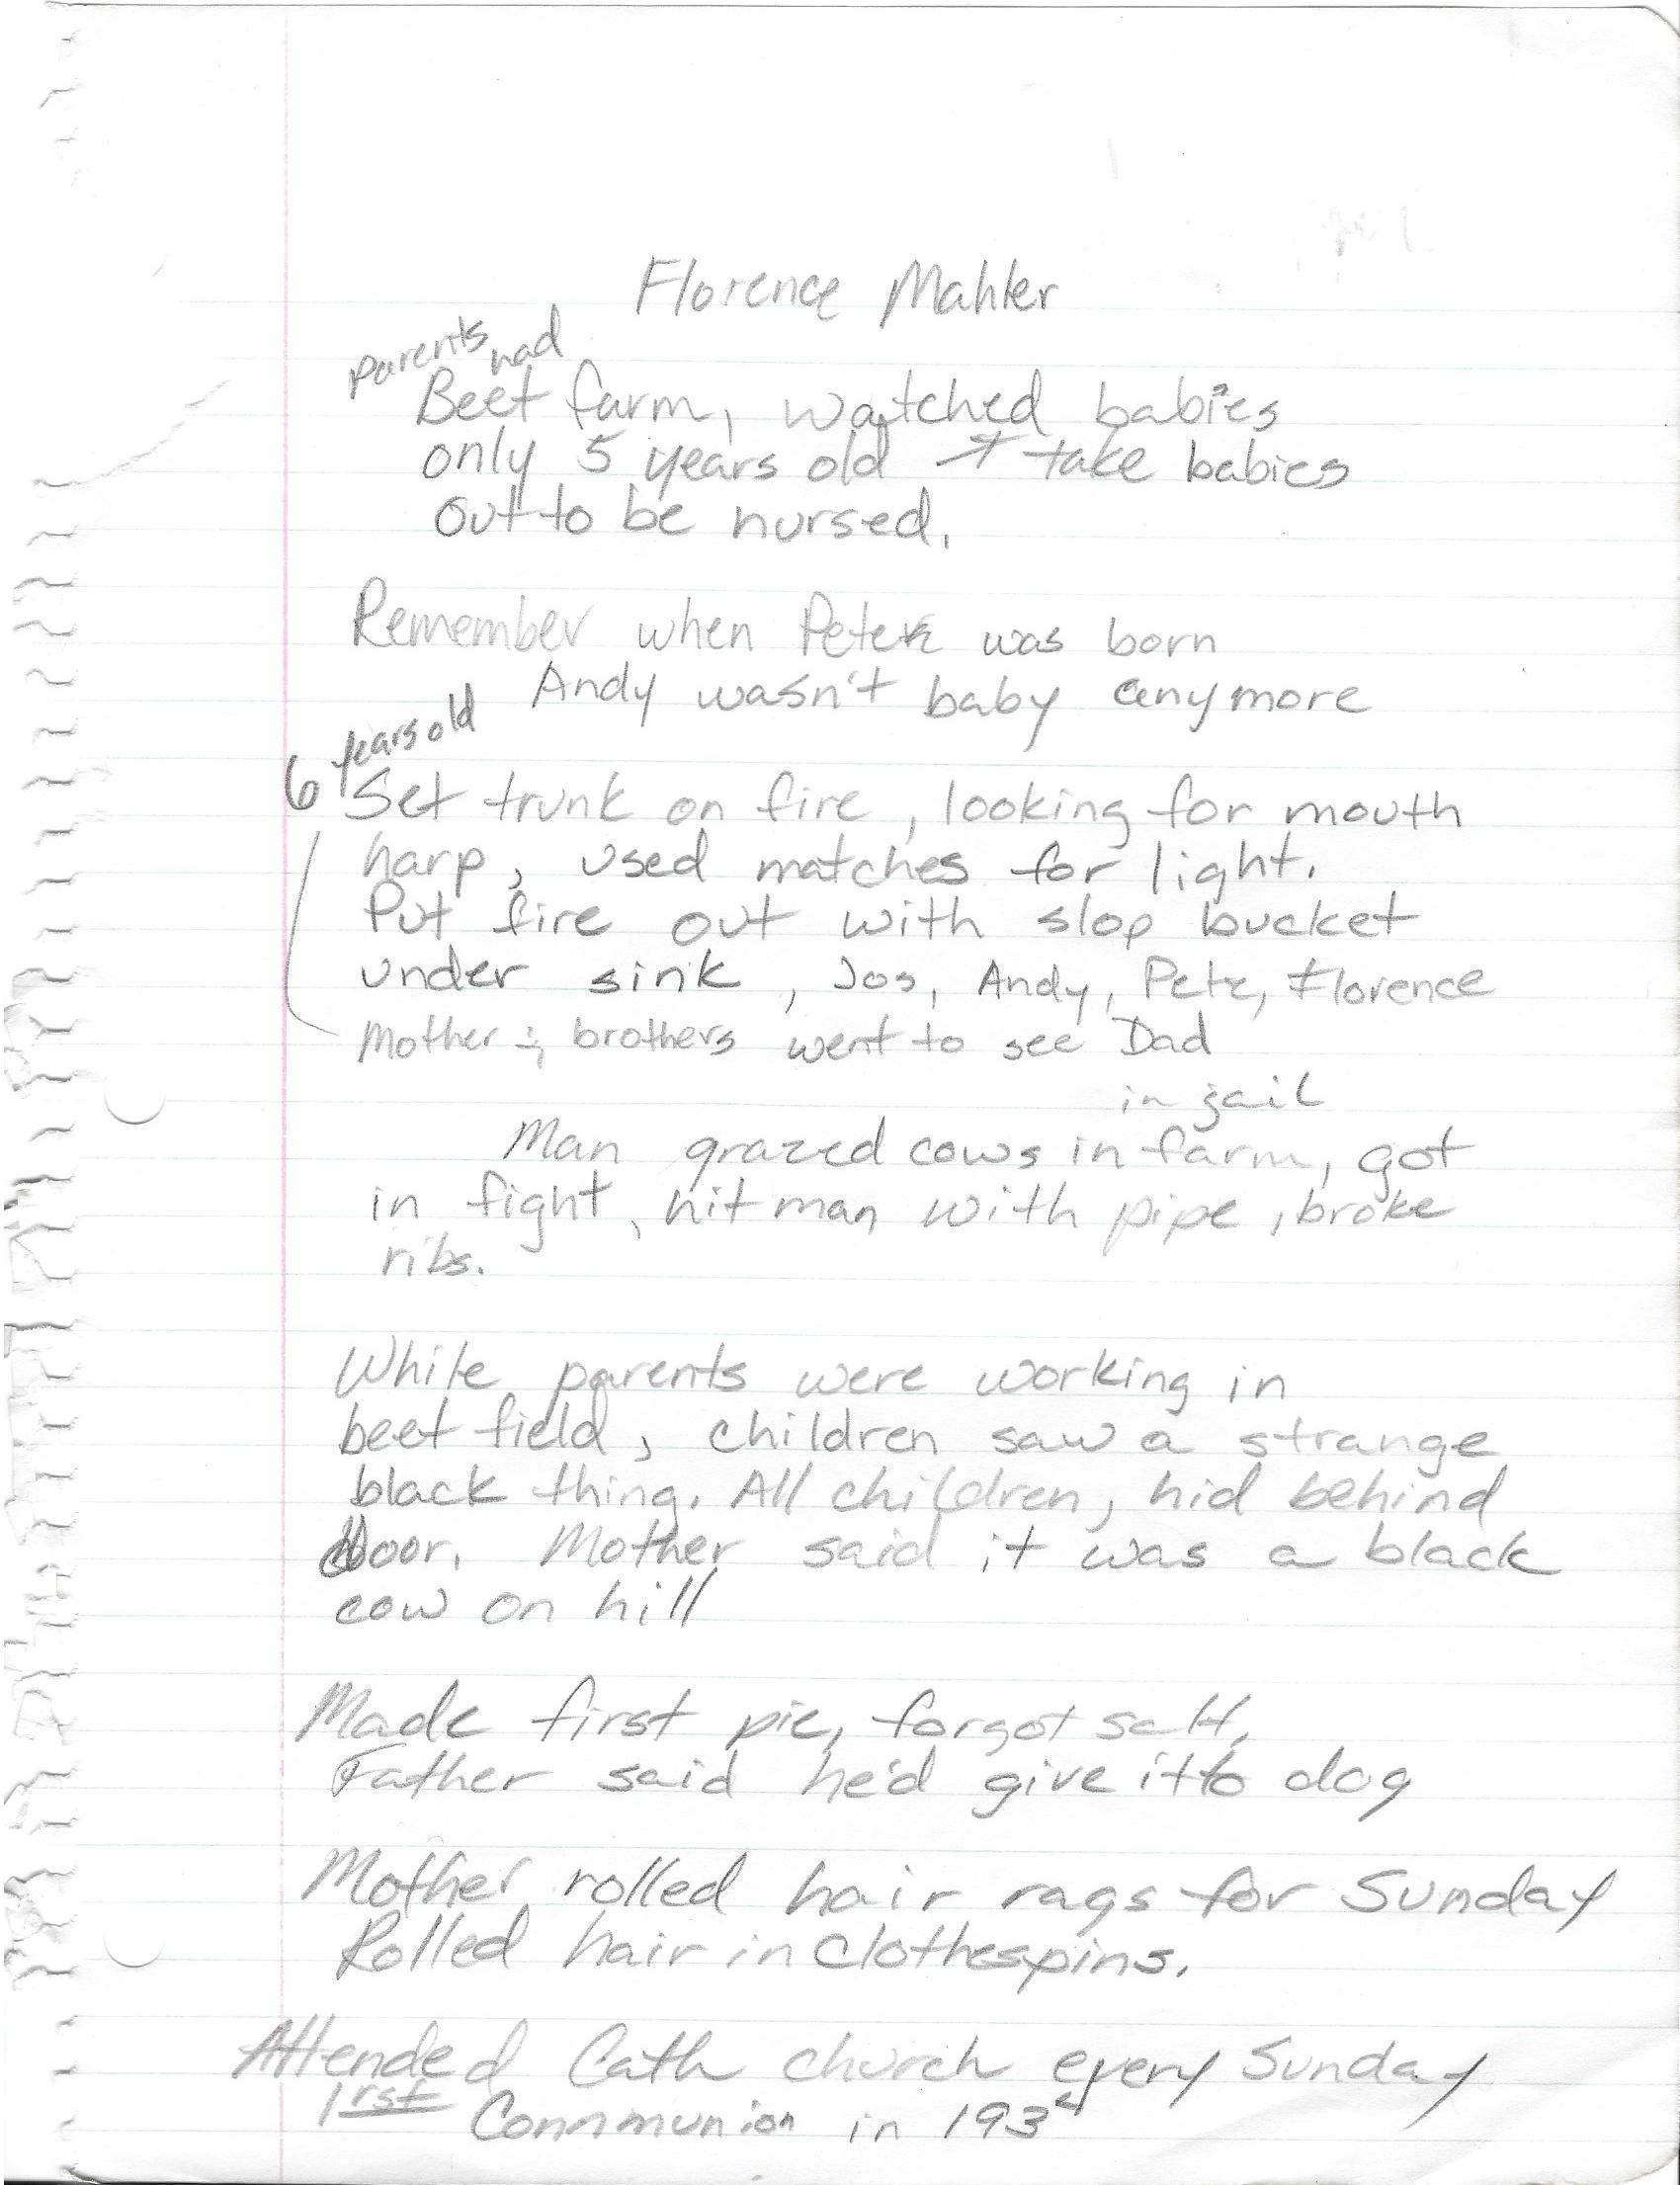 Florence Mahler
parents had
Beet farm, watched babies
only 5 years old + take babies
out to be nursed.
Remember when Peter was born
Andy wasn't baby anymore
6 years old
Set trunk on fire, looking for mouth
harp, used matches for light.
Put fire out with slop bucket
under sink, Jos, Andy, Pete, Florence
Mother & brothers went to see Dad
in jail
Man grazed cows in farm, got
in fight, hit man with pipe, broke
ribs.
While parents were working in
beet field, children saw a strange
black thing. All children, hid behind
door. Mother said it was a black
cow on hill
Made first pie, forgot salt,
Father said he'd give it to dog
Mother rolled hair rags for Sunday
Rolled hair in clothespins.
Attended Cath church every Sunday
1rst Communion in 193